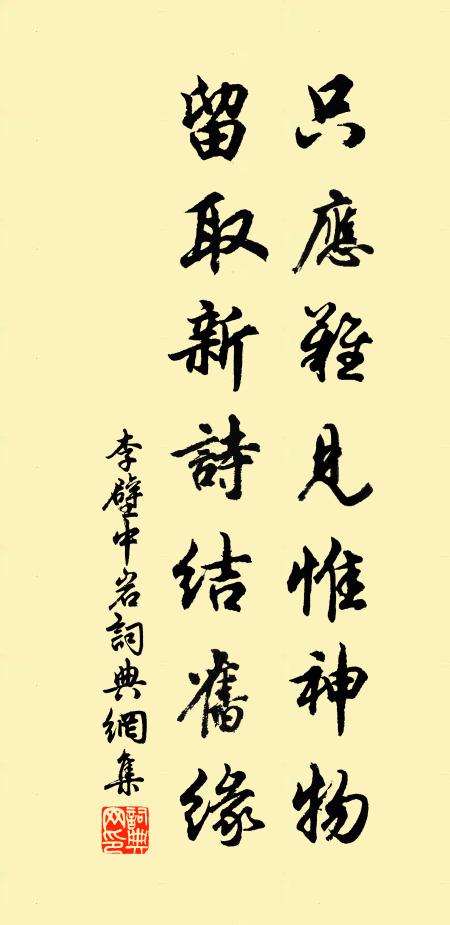 只應難見惟神物
留取新詩結舊緣
李壁中岩詞典網集
詞典網印